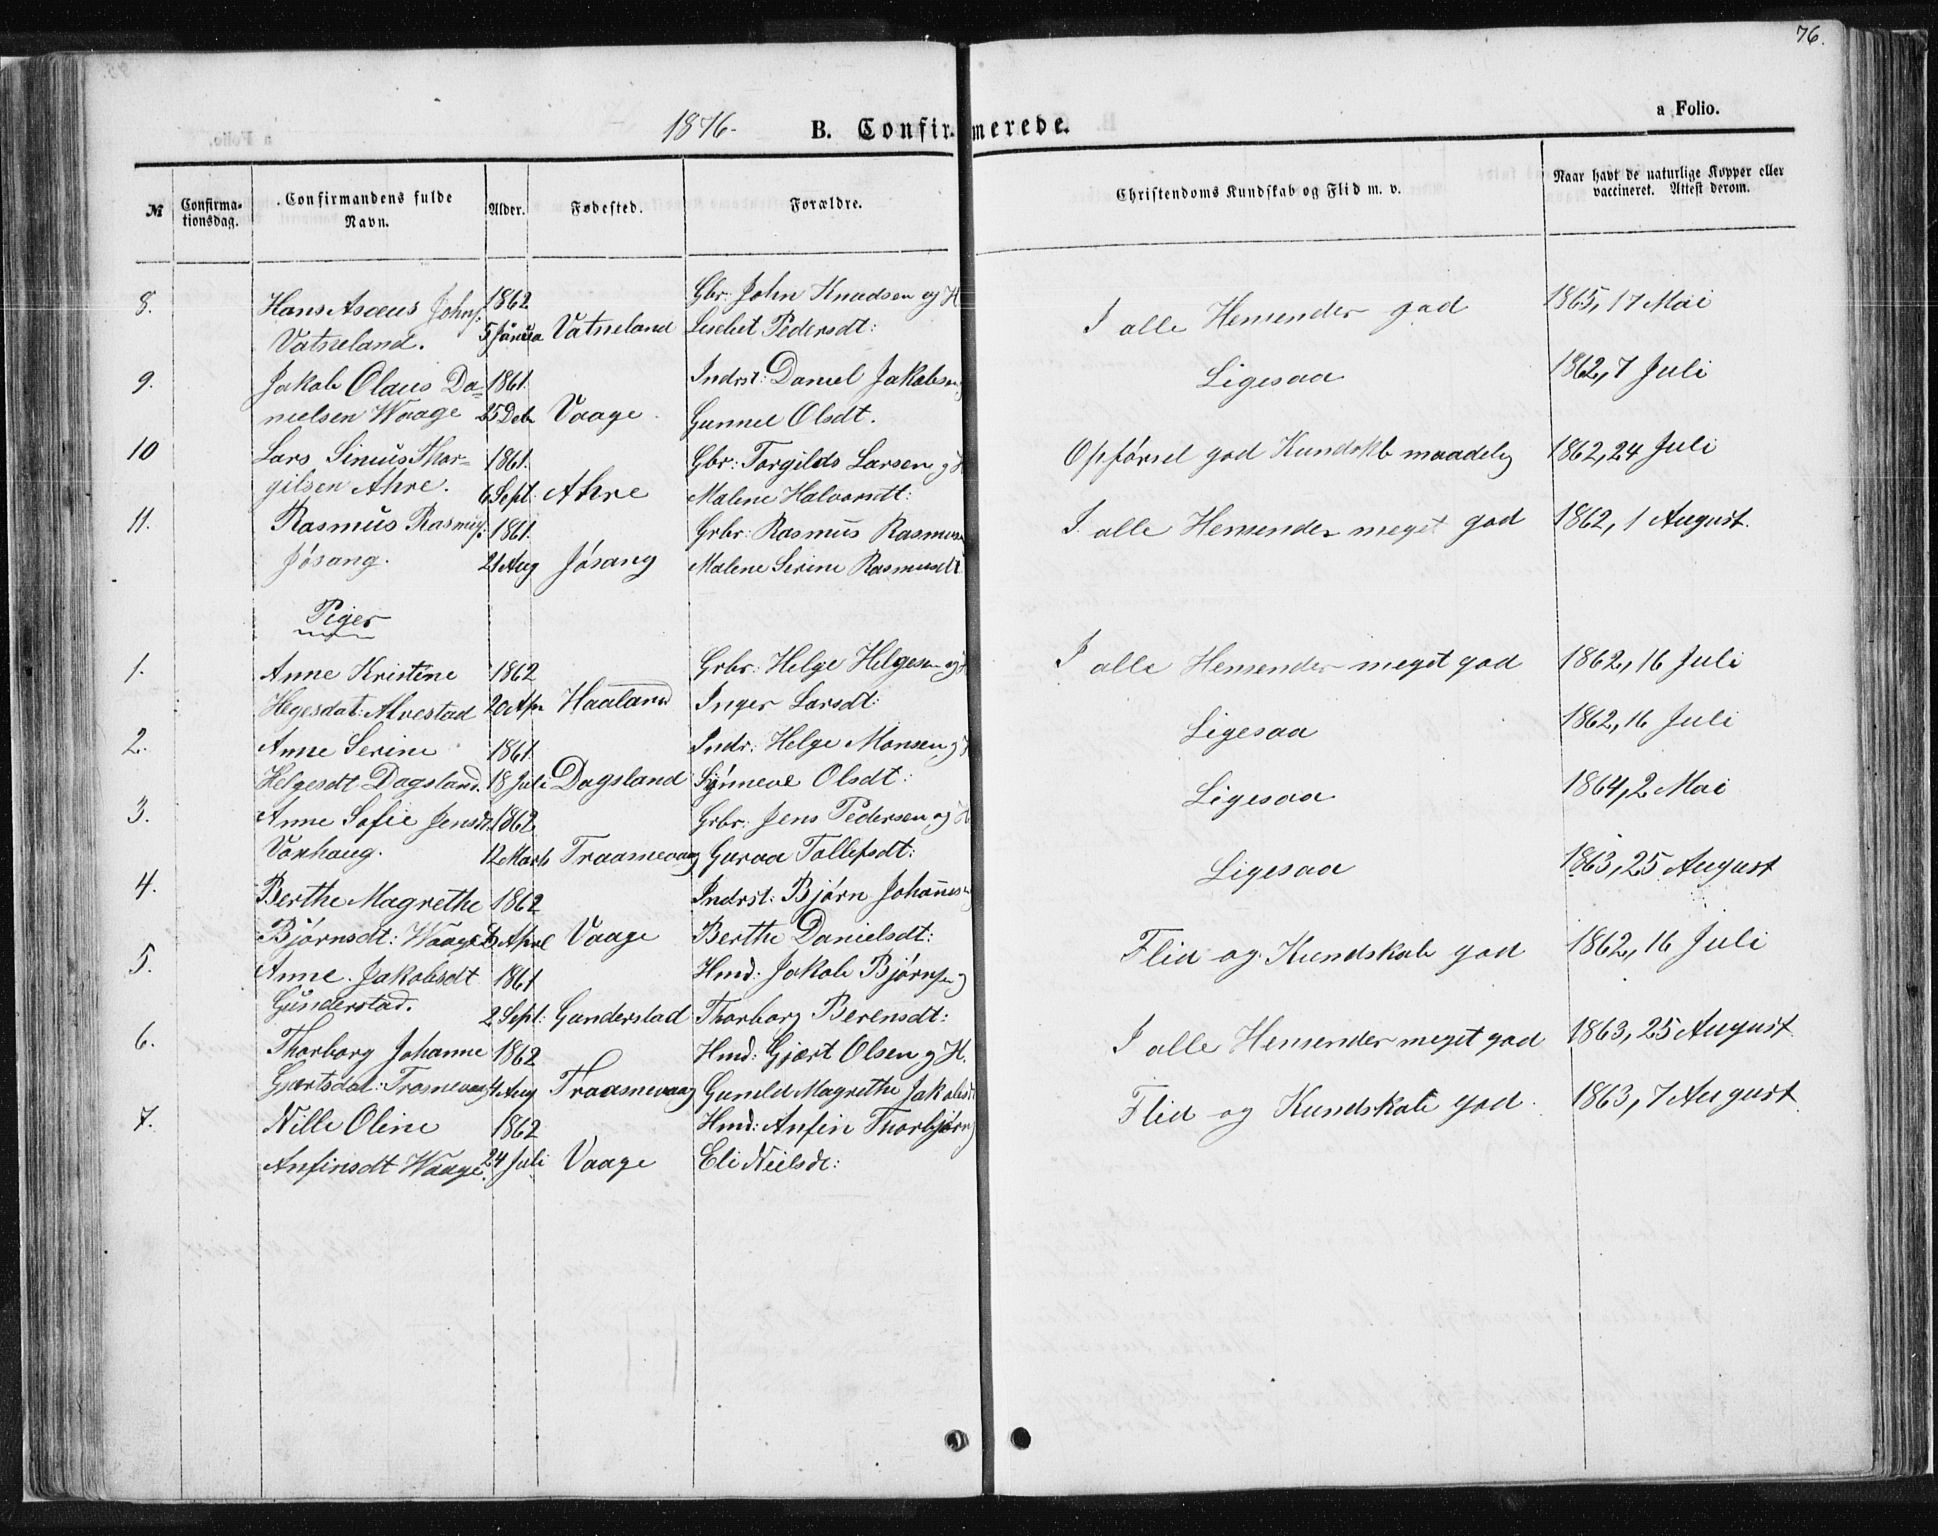 76.
a Folio.
1876. B. Confirmerede.
№ Confirma-tionsdag. Confirmandens fulde Navn. Alder. Fødested. Forældre. Christendoms Kundskab og Flid m. v. Naar havt de naturlige Kopper eller vaccineret. Attest derom.
8. Hans Asæus Johns: 1862 Gbr: John Knudsen og H I alle Hensender god 1865, 17 Mai
Vatneland. 5 Janua Vatneland Lisebet Pedersdt:
9. Jakob Olaus Da= 1861. Indrst: Daniel Jakobsen Ligesaa 1862, 7 Juli
nielsen Waage 25 Deb Vaage Gunnel Olsdt.
10 Lars Simus Thor= 1861. Gbr: Torgilds Larsen og H Opførsel god Kundskb maadelig 1862, 24 Juli
gilsen Ahre. 6 Sept: Ahre Malene Halvorsdt:
11. Rasmus Rasmus: 1861. Grbr: Rasmus Rasmusen I alle Hensender meget god 1862, 1 August.
Jøsang. 21 Aug Jøsang Malene Serine Rasmusdt
Piger
1. Anne Kristine 1862 Grbr: Helge Helgesen og H I alle Hensender meget god 1862, 16 Juli
Hegesdat: Alvestad 20 Apr Haaland Inger Larsdt:
2. Anne Serine 1861. Indr: Helge Monsen og Ligesaa 1862, 16 Juli
Helgesdt Dagsland. 18 Juli Dagsland Synneve Olsdt:
3. Anne Sofie Jensdt 1862 Grbr: Jens Pedersen og H Ligesaa 1864, 2 Mai
Vorhaug. 12 Marts Traamevaag Guroa Tollefsdt:
4. Berthe Magrethe 1862 Indrst: Bjørn Johannes Ligesaa 1863, 25 August
Bjørnsdt: Waage April Vaage Berthe Danielsdt:
5. Anne Jakobsdt 1861 Hmd: Jakob Bjørnsen Flid og Kundskab god 1862, 16 Juli
Gunderstad. 2 Sept: Gunderstad Thorborg Berensdt:
6. Thorborg Johanne 1862 Hmd: Gjært Olsen og H. I alle Hensender meget god 1863, 25 August
Gjærtsdat: Tromevaag 4 Aug Traamevaag Guneld Magrethe Jakobsdt
7. Nille Oline 1862 Hmd: Anfin Thorbjørn Flid og Kundskab god. 1863, 7 August
Anfinsdt Waage. 24 Juli Vaage Eli Nielsdt: